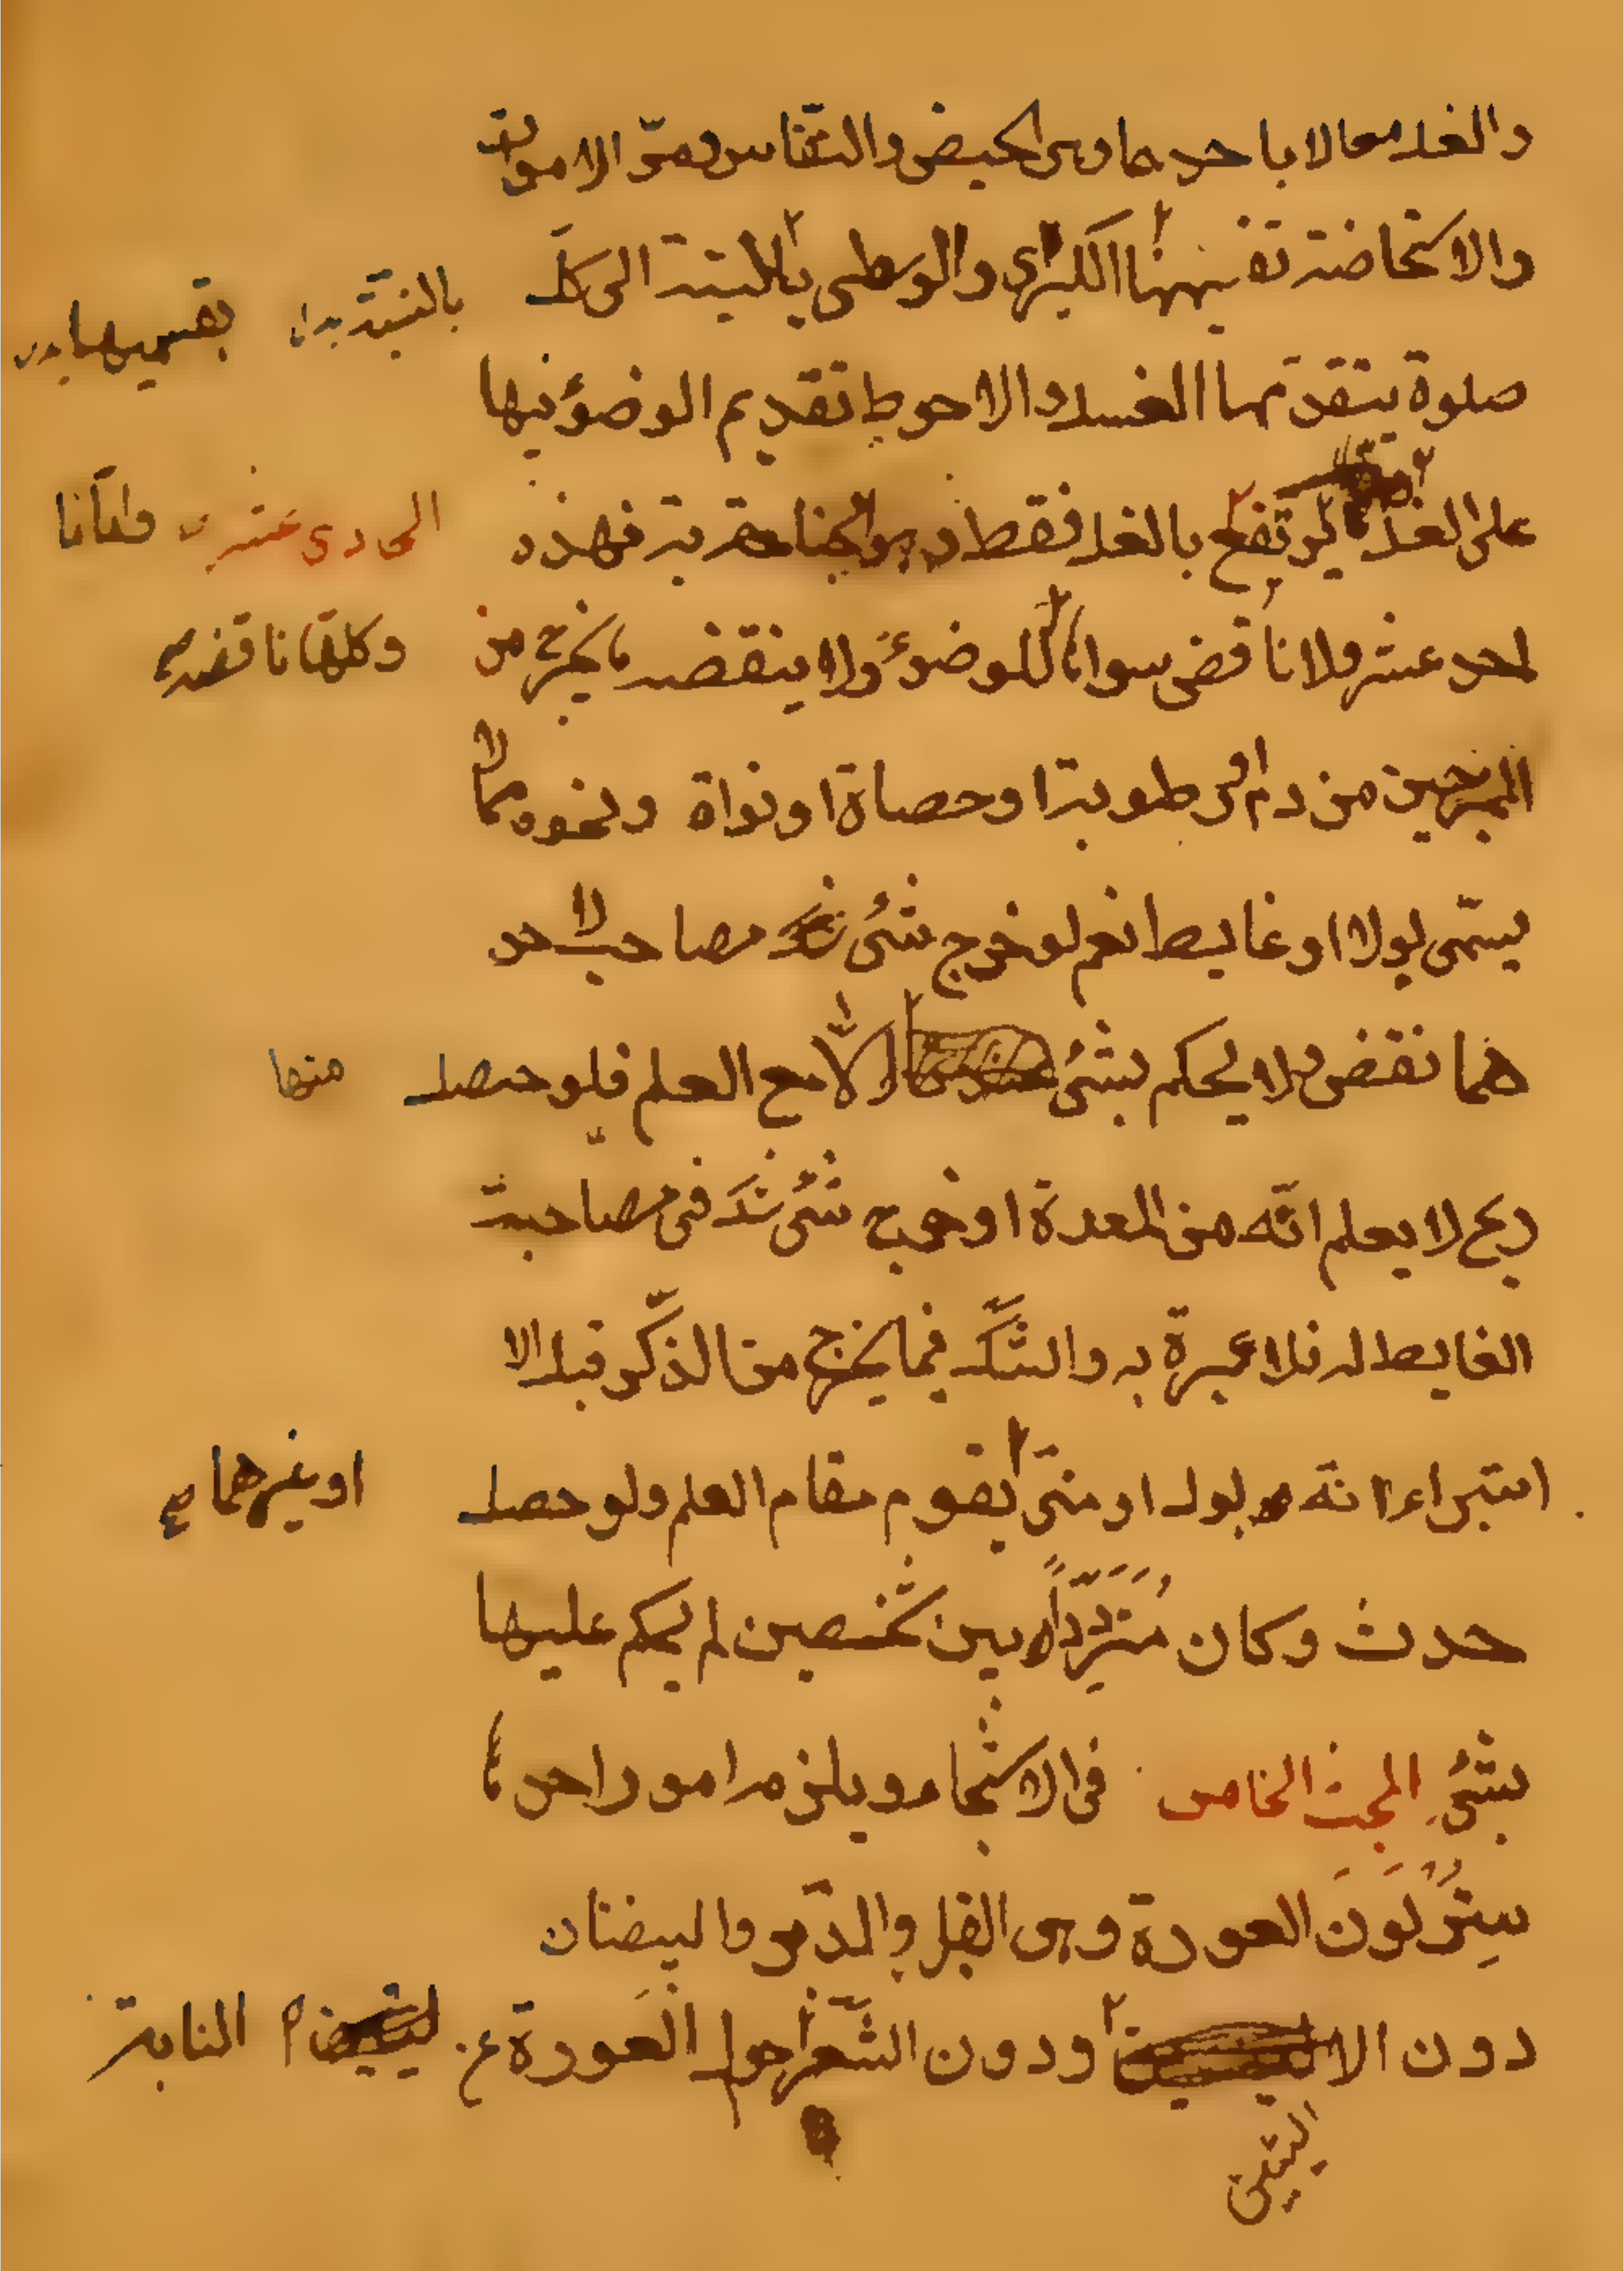 والغسل معا لا باحدهما وهى الحيض والنّفاس ومسّ الاموات
والاستحاضة بقسميها الكبرى والوسطى بالنسبة الى كلّ
بالنّسبة بدل بقسميها بدل
صلوة يتقدّمها الغسل والاحوط تقديم الوضوء فيها
على الغسل ترتفع بالغسل فقط وهو الجنابة فهذه
الحادى عشر
احد عشر ولا ناقض سواها للوضوء ولا ينقضه ما يخرج من
وكلّها ناقضة
المخرجين من دم او رطوبة او حصاة او نواة ونحوه ممّا لا
يسمّى بولا او غايط نعم لو خرج شئ مصاحب لاحد
هما نقض ولا يحكم بشئ الّا مع العلم فلو حصل
منها
ريح لا يعلم انّه من المعدة او خرج شئ شكّ فى مصاحبة
الغايط له فلا عبرة به والشّكّ فيما يخرج من الذّكر قبل الا
استبراء انّه بول او منىّ يقوم مقام العلم ولو حصل
او غيرهما
حدث وكان مُتَرَدِّداً بين شخصين لم يحكم عليها
بشئ المبحث الخامس فى الاستنجاء ويلزمه امور احدها
سترُ لَونَ العورة وهى القبل والدّبر والبيضتان
دون الاليتين ودون الشّعر حول العورة عن النابتة